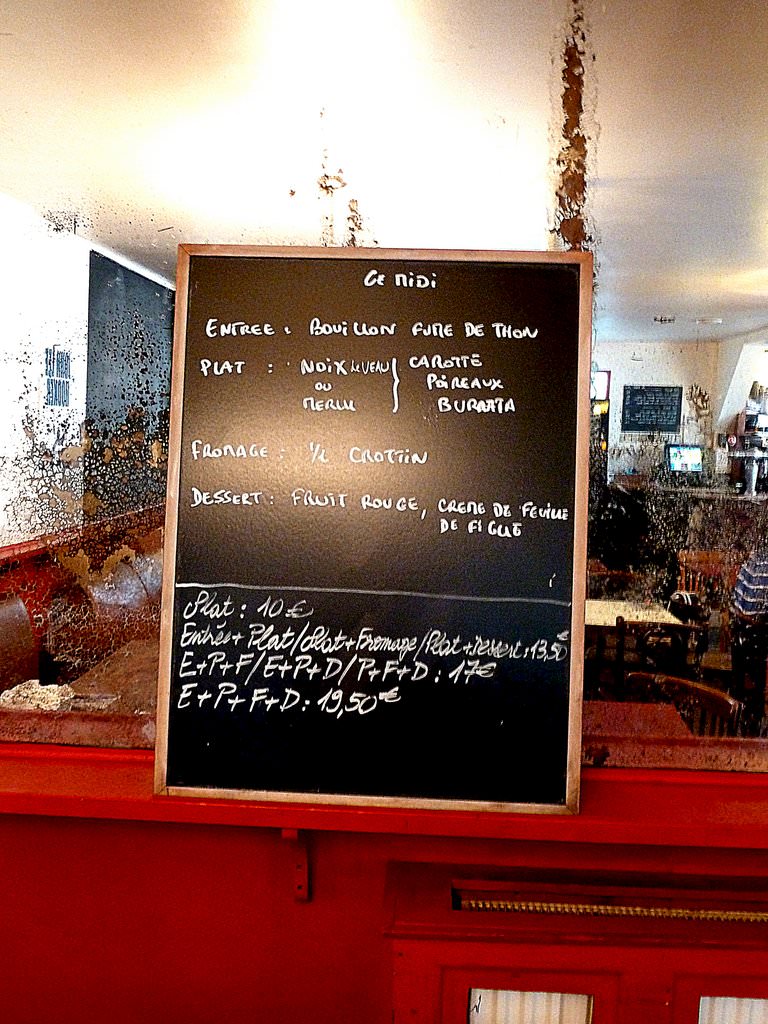 Ce MiDi
ENTREE : BOUILLON FUME DE THON
PLAT : NOIX DE VEAU } CAROTTE
OU POIREAUX
MERLU BURRATA
FROMAGE : 1/2 CROTTIN
DESSERT : FRUIT ROUGE, CREME DE FEUILLE
DE FIGUE
Plat : 10 €
Entrée + Plat / Plat + Fromage / Plat + Dessert : 13,50€
E+P+F / E+P+D / P+F+D : 17€
E+P+F+D : 19,50€